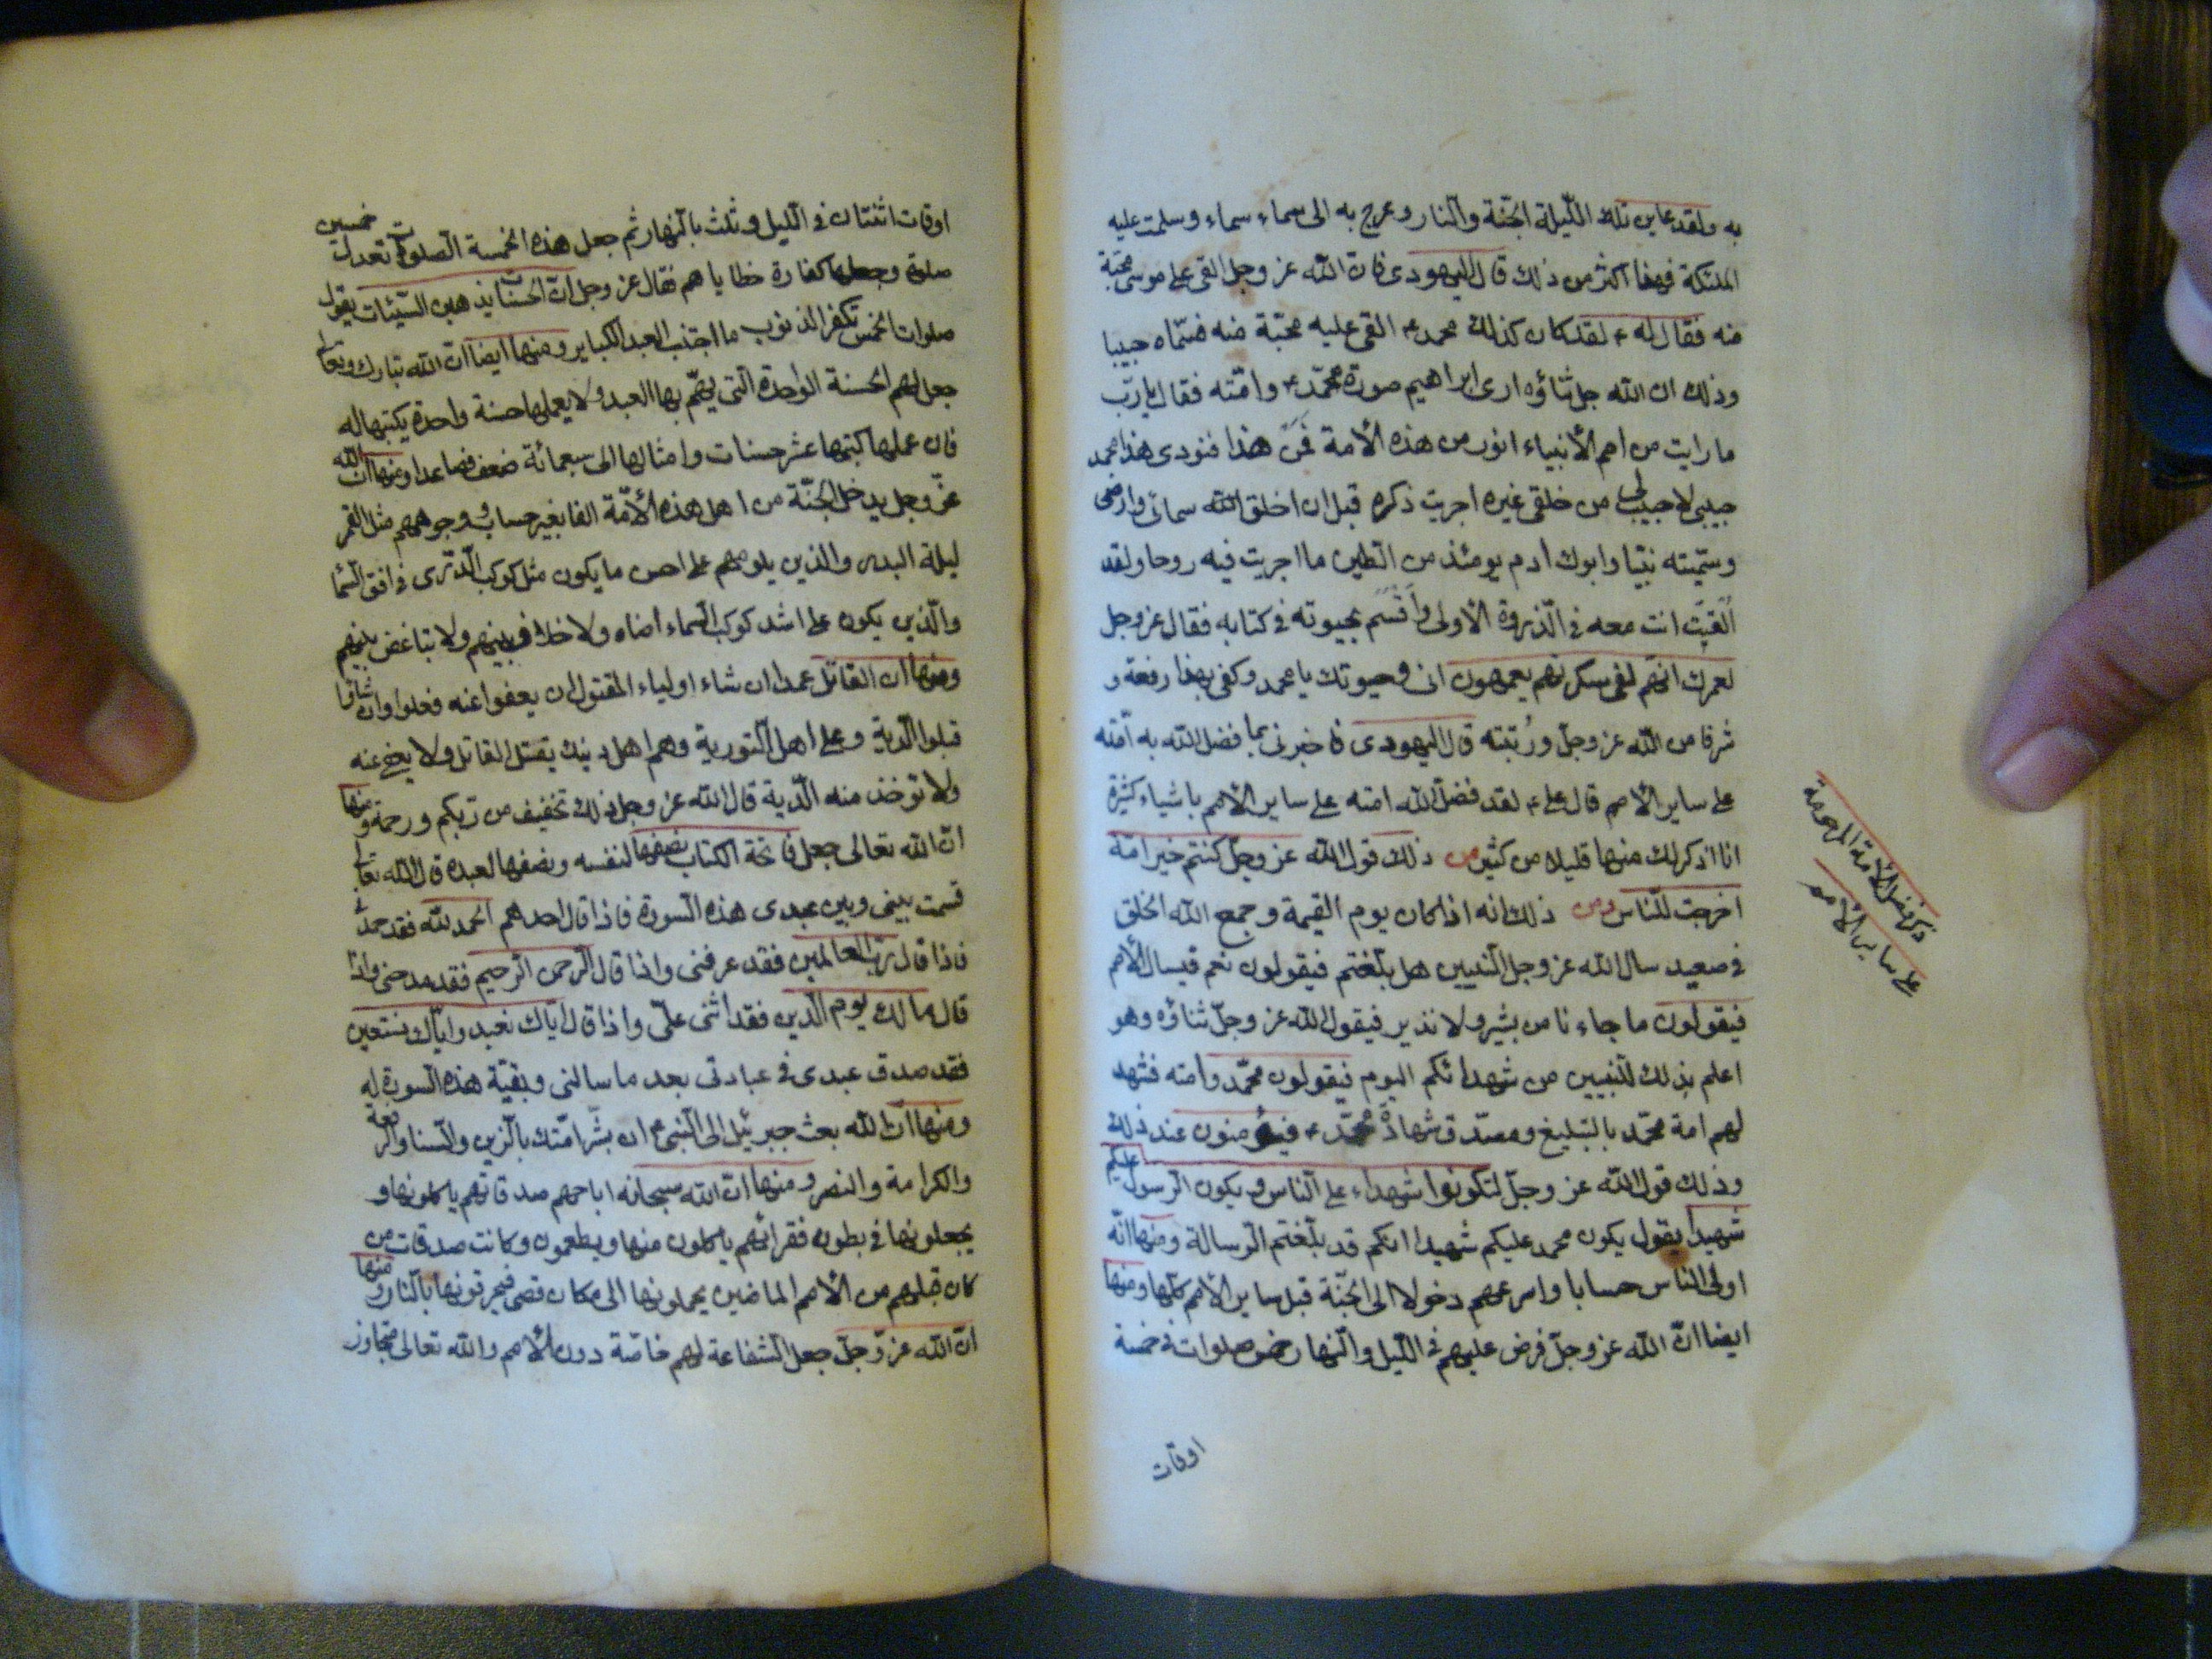 به ولقد عاين تلك اللّيلة الجنّة والنار وعرج به الى سماء سماء وسلمت عليه
الملئكة فهذا اكثر من ذلك قال اليهودى فان اللّه عز وجل القى على موسى محبّة
منه فقال له ع لقد كان كذلك محمد ع القى عليه محبّة منه فسمّاه حبيبا
وذلك ان اللّه جل ثناؤه ارى ابراهيم صورة محمّد ع وامّته فقال يا ربّ
ما رايت من امم الأنبياء انور من هذه الأمة فمَن هذا فنودى هذا محمد
حبيبى لا حبيب لى من خلقى غيره اجريت ذكره قبل ان اخلق اللّه سمائى وارضى
وسمّيته نبيّا وابوك ادم يومئذ من الطين ما اجريت فيه روحا ولقد
اُلقيتَ انت معه فى الذروة الأولى واَقسَم بحيوته فى كتابه فقال عز وجل
لعمرك انهّم لفى سكرتهم يعمهون اى وحيوتك يا محمد وكفى بهذا رفعة و
شرفا من اللّه عز وجلّ ورُتبته قال اليهودى فاخبرنى بما فضل اللّه به امّته
على ساير الأمم قال على ع لقد فضّل اللّه امته على ساير الأمم باشياء كثيرة
انا اذكر لك منها قليلا من كثير من ذلك قول اللّه عز وجلّ كنتم خير امّة
اخرجت للنّاس ومن ذلك انه اذا كان يوم القيمة وجمع اللّه الخلق
فى صعيد سال اللّه عز وجل النّبيين هل بلّغتم فيقولون نعم فيسال الأمم
فيقولون ما جاءنا من بشير ولا نذير فيقول اللّه عز وجلّ ثناؤه وهو
اعلم بذلك للنّبيين من شهدائكم اليوم فيقولون محمّد وامته فتشهد
لهم امة محمّد بالتبليغ ومصدّق شهادة محمّد ع فيؤمنون عند ذلك
وذلك قول اللّه عز وجلّ لتكونوا شهداء على النّاس ويكون الرّسول عليكم
شهيدا يقول يكون محمد عليكم شهيدا انكم قد بلّغتم الرّسالة ومنها انّه
اولى الناس حسابا واسرعهم دخولا الى الجنّة قبل ساير الأمم كلّها ومنها
ايضا انّ اللّه عز وجلّ فرض عليهم فى اللّيل والنّهار خمس صلوات فى خمسة
اوقات
ذكر فضل الأمة المرحومة
على ساير الأمم
اوقات اثنتان فى اللّيل وثلث بالنّهار ثم جعل هذه الخمسة الصّلوات تعدل خمسين
صلوة وجعلها كفارة خطاياهم فقال عز وجل انّ الحسنات يذهبن السّيّئات يقول
صلوات الخمس تكفر الذنوب ما اجتنب العبد الكباير ومنها ايضا انّ اللّه تبارك وتعالى
جعل لهم الحسنة الواحدة الّتى يهمّ بها العبد ولا يعملها حسنة واحدة يكتبها له
فان عملها كتبها عشر حسنات وامثالها الى سبعمائة ضعف فصاعدا ومنها انّ اللّه
عزّ وجل يدخل الجنّة من اهل هذه الأمّة الفا بغير حساب ووجوههم مثل القمر
ليلة البدر والذين يلونهم على احسن ما يكون مثل كوكب الدّرّى فى افق السّما
والّذين يكون على اشد كوكب السماء اضاه ولا خلاف بينهم ولا تباغض بينهم
ومنها ان القاتل عمدا ان شاء اولياء المقتول ان يعفوا عنه فعلوا وان شاؤا
قبلوا الدّية وعلى اهل التّورية وهم اهل دينك يقتل القاتل ولا يعفى عنه
ولا تؤخذ منه الدّية قال اللّه عز وجل ذلك تخفيف من ربّكم ورحمة ومنها
انّ اللّه تعالى جعل فاتحة الكتاب نصفها لنفسه ونصفها لعبده قال اللّه تعالى
قسمت بينى وبين عبدى هذه السّورة فاذا قال احدهم الحمد للّه فقد حمدنى
فاذا قال ربّ العالمين فقد عرفنى واذا قال الرّحمن الرّحيم فقد مدحنى واذا
قال مالك يوم الدّين فقد اثنى علىّ واذا قال ايّاك نعبد وايّاك نستعين
فقد صدق عبدى فى عبادتى بعد ما سالنى وبقيّة هذه السّورة له
ومنها انّ اللّه بعث جبرئيل الى النّبى ع ان بشّر امّتك بالزّين والسّنا والرفعة
والكرامة والنصر ومنها انّ اللّه سبحانه اباحهم صدقاتهم ياكلونها و
يجعلونها فى بطون فقرائهم ياكلون منها ويطعمون وكانت صدقات من
كان قبلهم من الأمم الماضين يحملونها الى مكان قصى فيحرقونها بالنّار ومنها
انّ اللّه عزّ وجلّ جعل الشّفاعة لهم خاصّة دون الأمم واللّه تعالى متجاوز